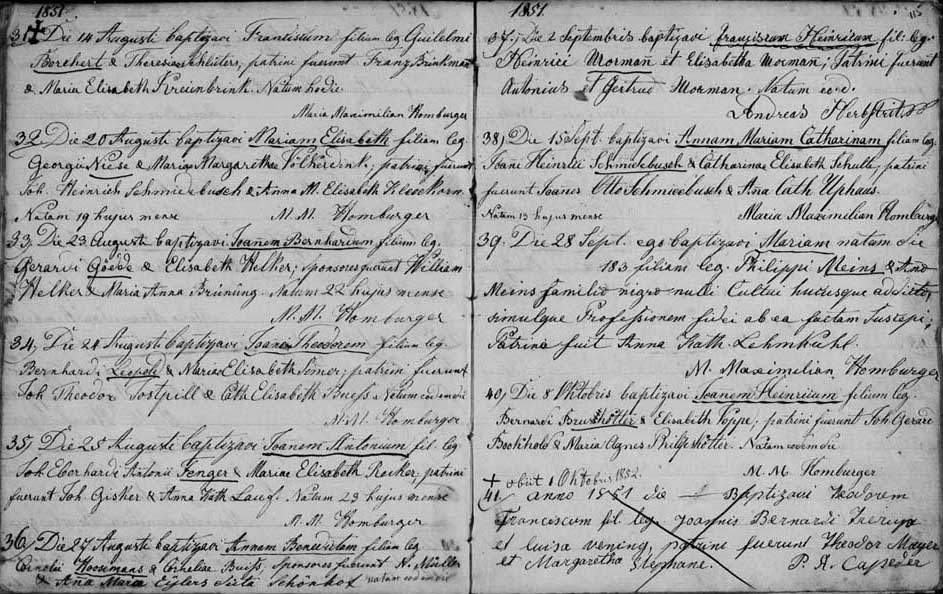 1851.
31. Die 14 Augusti baptizavi Franciscum filium leg. Guilelmi
Borchert & Theresia Schlüters; patrini fuerunt Franz Brinkman
& Maria Elisabeth Kreinbrink. Natum hodie
Maria Maximilian Homburger
32. Die 20 Augusti baptizavi Mariam Elisabeth filiam leg.
Georgii Niese & Maria Margaretha; patrini fuerunt
Joh. Heinrich Schmiedebusch & Anna M. Elisabeth
Natam 19 hujus mense M. M. Homburger
33. Die 23 Augusti baptizavi Joanem Bernhardum filium leg.
Gerardi Goedde & Elisabeth Helker; sponsores fuerunt William
Helker & Maria Anna Brüning. Natum 22 hujus mense
M. M. Homburger
34. Die 24 Augusti baptizavi Joanem Theodorem filium leg.
Bernhardi Leopold & Maria Elisabeth; patrini fuerunt
Joh Theodor & Cath Elisabeth Natum eodem die
M. M. Homburger
35) Die 25 Augusti baptizavi Joanem Antonium fil. leg
Joh Eberhardi Antonii Fenger & Mariae Elisabeth Recker, patrini
fuerunt Joh. Gisker & Anna Kath Natum 23 hujus mense
M. M. Homburger
36) Die 27 Augusti baptizavi Annam Benedictam filiam leg
Cornelii Hoosemans & Corneliae Buiss, Sponsores fuerunt H. Müller
& Aña Maria Eylers Schönhof natam eodem die
1851. 115
37; Die 2 Septembris baptizavi franziscum Heinricum fil. leg.
Heinrici Morman et Elisabetha Morman; Patrini fuerunt
Antonius et Gertrud Morman. Natum eo.d.
Andreas Herbstrit
38) Die 15 Sept. baptizavi Annam Mariam Catharinam filiam leg.
Joani Heinrici Schmiedebusch & Catharinae Elisabeth Schulte, patrini
fuerunt Joanes Otto Schmiedebusch & Aña Cath Uphaus.
Natam 13 hujus mense Maria Maximilian Homburger
39. Die 28 Sept. ego baptizavi Mariam natam die
183 filiam leg. Philippi Meins & Anā
Meins familia nigro nulli Cultui hucusque addictos
simulque Professionem fidei ab ea factam suscepi;
Patrina fuit Anna Kath. Lehmkuhl.
M. Maximilian Homburger
40) Die 8 Oktobris baptizavi Joanem Heinricum filium leg.
Bernardi & Elisabeth Poppe; patrini fuerunt Joh Gerard
Bookhold & Maria Agnes Natum eodem die
M. M. Homburger
+ obiit 1 Oktobris 1852.
41) anno 1851 die — Baptizavi Theodorem
Franciscum fil. leg. Joannis Bernardi
et Luisa Vening, patrini fuerunt Theodor Mayer
et Margaretha Stephane. P. A. Capeder